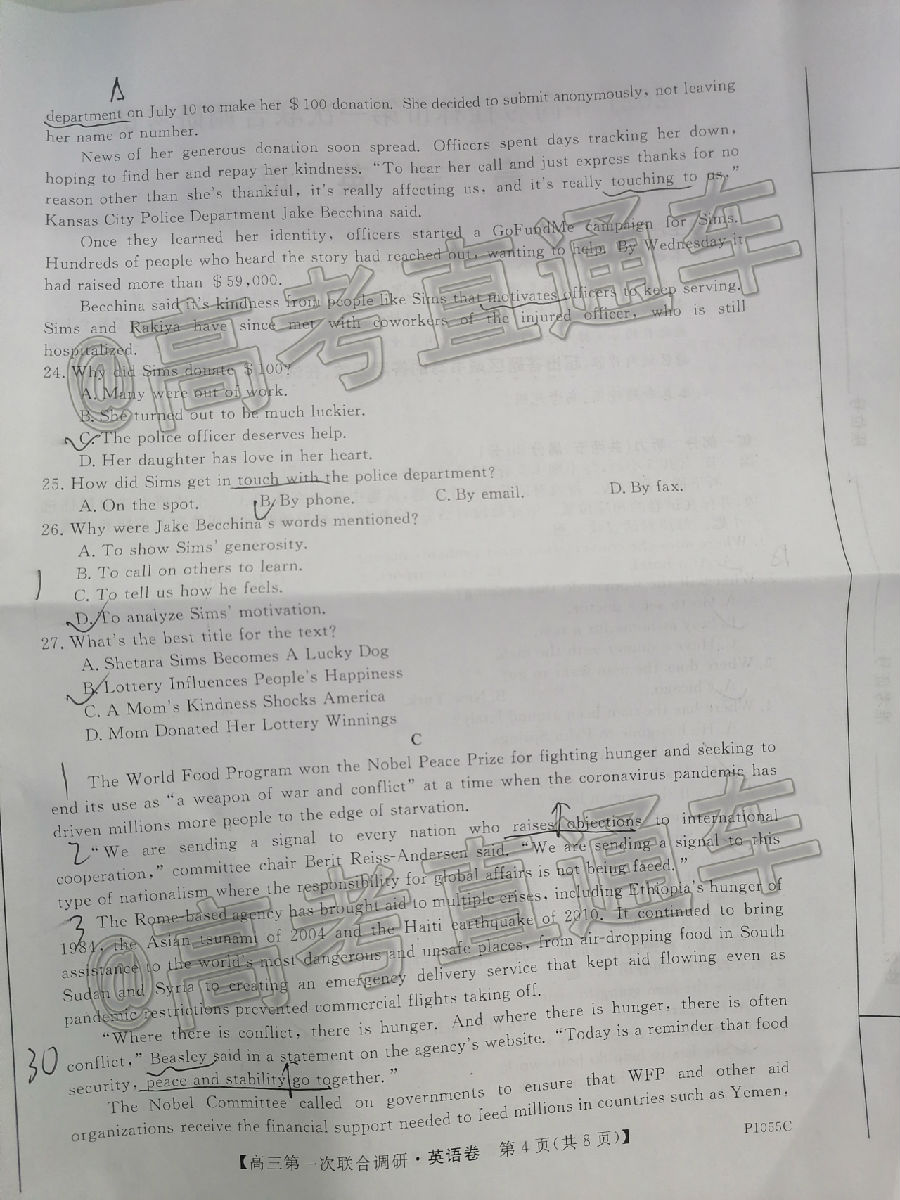 A
department on July 10 to make her $100 donation. She decided to submit anonymously, not leaving
her name or number.
News of her generous donation soon spread. Officers spent days tracking her down,
hoping to find her and repay her kindness. "To hear her call and just express thanks for no
reason other than she's thankful, it's really affecting us, and it's really touching to us,"
Kansas City Police Department Jake Becchina said.
Once they learned her identity, officers started a GoFundMe campaign for Sims.
Hundreds of people who heard the story had reached out, wanting to help. By Wednesday it
had raised more than $59,000.
Becchina said it's kindness from people like Sims that motivates officers to keep serving.
Sims and Rakiya have since met with coworkers of the injured officer, who is still
hospitalized.
24. Why did Sims donate $100?
A. Many were out of work.
B. She turned out to be much luckier.
C. The police officer deserves help.
D. Her daughter has love in her heart.
25. How did Sims get in touch with the police department?
A. On the spot. B. By phone. C. By email. D. By fax.
26. Why were Jake Becchina's words mentioned?
A. To show Sims' generosity.
B. To call on others to learn.
C. To tell us how he feels.
D. To analyze Sims' motivation.
27. What's the best title for the text?
A. Shetara Sims Becomes A Lucky Dog
B. Lottery Influences People's Happiness
C. A Mom's Kindness Shocks America
D. Mom Donated Her Lottery Winnings
C
1 The World Food Program won the Nobel Peace Prize for fighting hunger and seeking to
end its use as "a weapon of war and conflict" at a time when the coronavirus pandemic has
driven millions more people to the edge of starvation.
2 "We are sending a signal to every nation who raises objections to international
cooperation," committee chair Berit Reiss-Andersen said. "We are sending a signal to this
type of nationalism where the responsibility for global affairs is not being faced."
3 The Rome-based agency has brought aid to multiple crises, including Ethiopia's hunger of
1984, the Asian tsunami of 2004 and the Haiti earthquake of 2010. It continued to bring
assistance to the world's most dangerous and unsafe places, from air-dropping food in South
Sudan and Syria to creating an emergency delivery service that kept aid flowing even as
pandemic restrictions prevented commercial flights taking off.
"Where there is conflict, there is hunger. And where there is hunger, there is often
30 conflict," Beasley said in a statement on the agency's website. "Today is a reminder that food
security, peace and stability go together."
The Nobel Committee called on governments to ensure that WFP and other aid
organizations receive the financial support needed to feed millions in countries such as Yemen,
【高三第一次联合调研·英语卷 第4页(共8页)】 P1055C
@高考直通车
@高考直通车